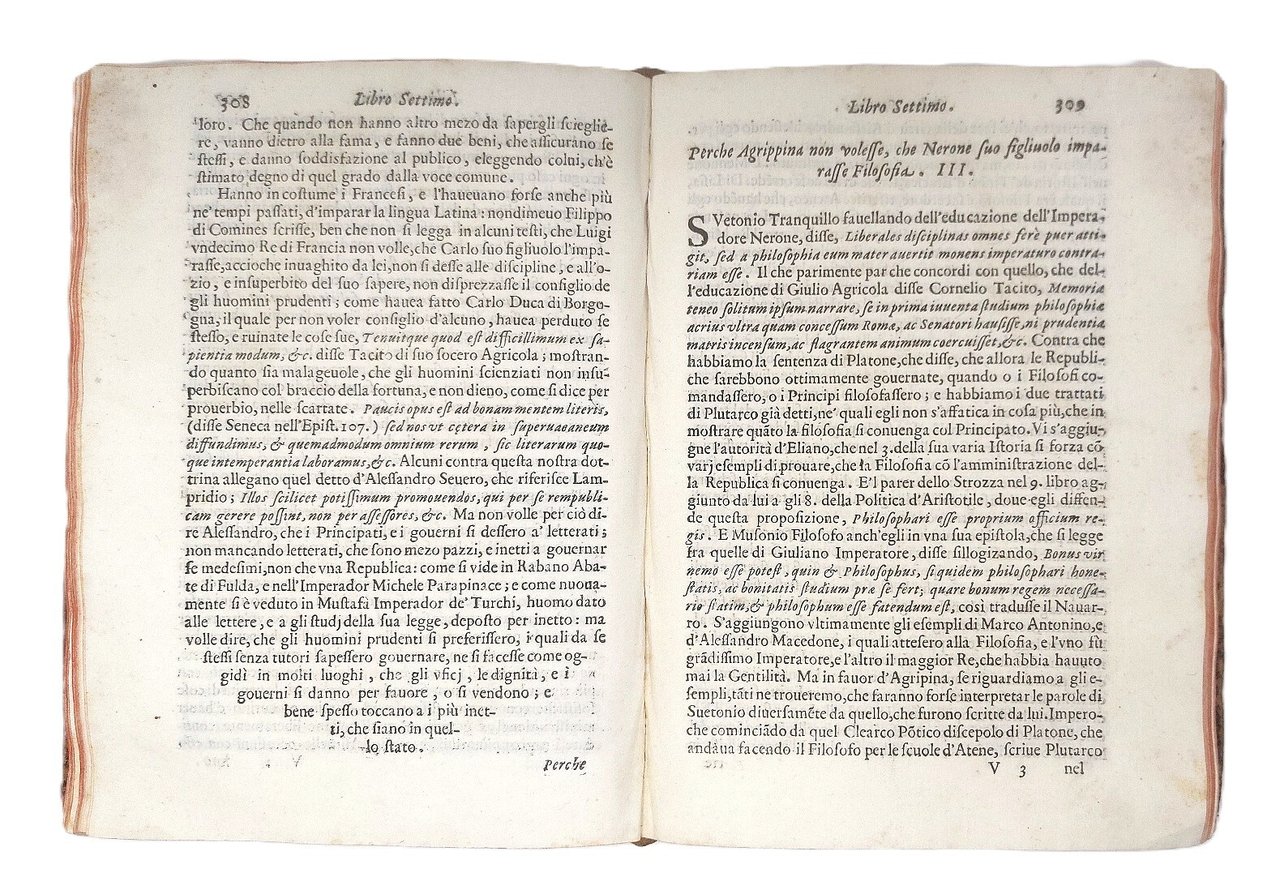 308 Libro Settimo.
loro. Che quando non hanno altro mezo da sapergli sciegliе-
re, vanno dietro alla fama, e fanno due beni, che assicurano se
stessi, e danno soddisfazione al publico, eleggendo colui, ch'è
stimato degno di quel grado dalla voce comune.
Hanno in costume i Francesi, e l'haueuano forse anche più
ne' tempi passati, d'imparar la lingua Latina: nondimeuo Filippo
di Comines scrisse, ben che non si legga in alcuni testi, che Luigi
vndecimo Re di Francia non volle, che Carlo suo figliuolo l'impa-
rasse, accioche inuaghito da lei, non si desse alle discipline, e all'o-
zio, e insuperbito del suo sapere, non disprezzasse il consiglio de
gli huomini prudenti; come hauea fatto Carlo Duca di Borgo-
gna, il quale per non voler consiglio d'alcuno, hauea perduto se
stesso, e ruinate le cose sue, Tenuitque quod est difficillimum ex sa-
pientia modum, &c. disse Tacito di suo socero Agricola; mostran-
do quanto sia malageuole, che gli huomini scienziati non insu-
perbiscano col braccio della fortuna, e non dieno, come si dice per
prouerbio, nelle scartate. Paucis opus est ad bonam mentem literis,
(disse Seneca nell'Epist. 107.) sed nos vt cętera in superuaeaneum
diffundimus, & quemadmodum omnium rerum, sic literarum quo-
que intemperantia laboramus, &c. Alcuni contra questa nostra dot-
trina allegano quel detto d'Alessandro Seuero, che riferisce Lam-
pridio; Illos scilicet potissimum promouendos, qui per se rempubli-
cam gerere possint, non per assessores, &c. Ma non volle per ciò di-
re Alessandro, che i Principati, e i gouerni si dessero a' letterati;
non mancando letterati, che sono mezo pazzi, e inetti a gouernar
se medesimi, non che vna Republica: come si vide in Rabano Aba-
te di Fulda, e nell'Imperador Michele Parapinace; e come nuoua-
mente si è veduto in Mustafà Imperador de' Turchi, huomo dato
alle lettere, e a gli studj della sua legge, deposto per inetto: ma
volle dire, che gli huomini prudenti si preferissero, i quali da se
stessi senza tutori sapessero gouernare, ne si facesse come og-
gidì in molti luoghi, che gli vficj, le dignità, e i
gouerni si danno per fauore, o si vendono; e
bene spesso toccano a i più inet-
ti, che siano in quel-
lo stato.
Perche
Libro Settimo. 309
Perche Agrippina non volesse, che Nerone suo figliuolo impa-
rasse Filosofia. III.
SVetonio Tranquillo fauellando dell'educazione dell'Impera-
dore Nerone, disse, Liberales disciplinas omnes ferè puer atti-
git, sed a philosophia eum mater auertit monens imperaturo contra-
riam esse. Il che parimente par che concordi con quello, che del-
l'educazione di Giulio Agricola disse Cornelio Tacito, Memoria
teneo solitum ipsum narrare, se in prima iuuenta studium philosophia
acrius vltra quam concessum Romæ, ac Senatori hausisse, ni prudentia
matris incensum, ac flagrantem animum coercuisset, &c. Contra che
habbiamo la sentenza di Platone, che disse, che allora le Republi-
che sarebbono ottimamente gouernate, quando o i Filosofi co-
mandassero, o i Principi filosofassero; e habbiamo i due trattati
di Plutarco già detti, ne' quali egli non s'affatica in cosa più, che in
mostrare quãto la filosofia si conuenga col Principato. Vi s'aggiu-
gne l'autorità d'Eliano, che nel 3. della sua varia Istoria si forza cõ
varj esempli di prouare, che la Filosofia cõ l'amministrazione del-
la Republica si conuenga. E'l parer dello Strozza nel 9. libro ag-
giunto da lui a gli 8. della Politica d'Aristotile, doue egli diffen-
de questa proposizione, Philosophari esse proprium officium re-
gis. E Musonio Filosofo anch'egli in vna sua epistola, che si legge
fra quelle di Giuliano Imperatore, disse sillogizando, Bonus vir
nemo esse potest, quin & Philosophus, si quidem philosophari hone-
statis, ac bonitatis studium præ se fert; quare bonum regem necessa-
rio statim, & philosophum esse fatendum est, così tradusse il Nauar-
ro. S'aggiungono vltimamente gli esempli di Marco Antonino, e
d'Alessandro Macedone, i quali attesero alla Filosofia, e l'vno fù
grãdissimo Imperatore, e l'altro il maggior Re, che habbia hauuto
mai la Gentilità. Ma in fauor d'Agripina, se riguardiamo a gli e-
sempli, tãti ne troueremo, che faranno forse interpretar le parole di
Suetonio diuersamẽte da quello, che furono scritte da lui. Impero-
che cominciãdo da quel Clearco Põtico discepolo di Platone, che
andãua facendo il Filosofo per le scuole d'Atene, scriue Plutarco
V 3 nel